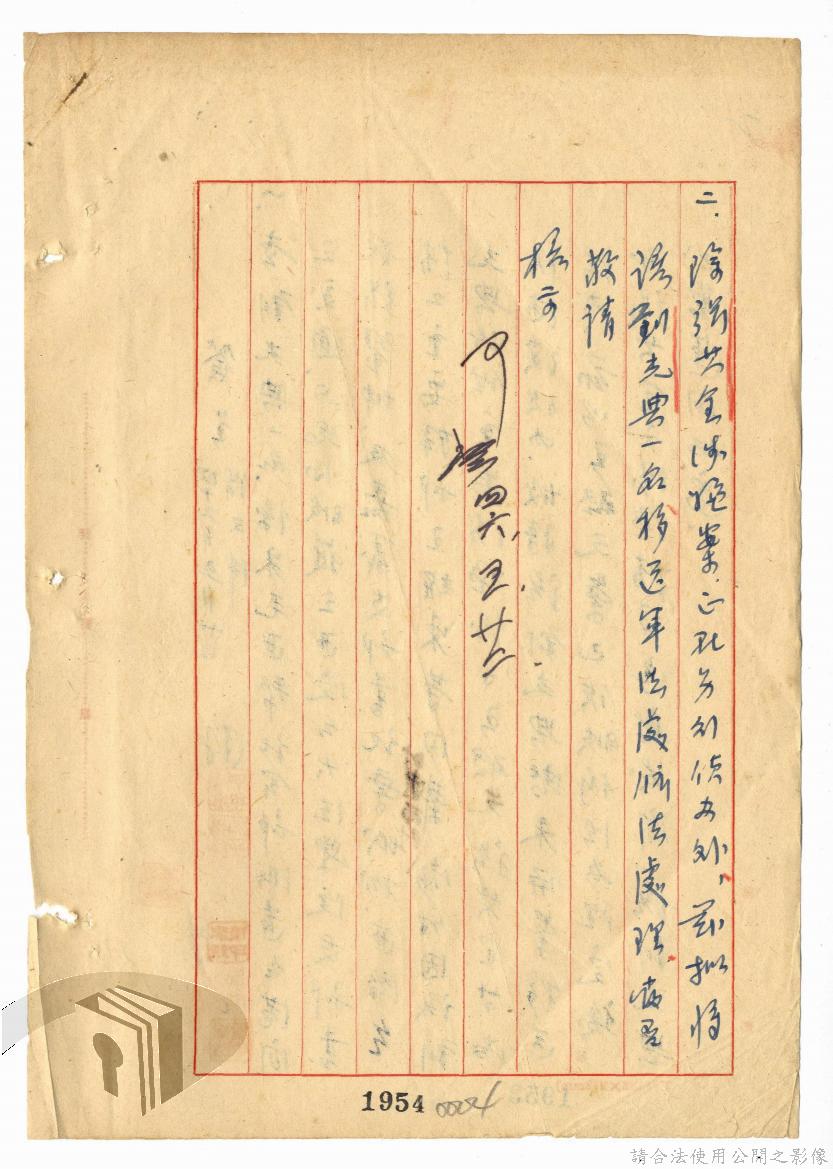 二、除張廿全涉嫌案、正飭另行偵办外,茲擬將
該劉光典一名移送軍法處依法處理。當否
敬請
核示
可
四六、五、廿
1954
0004
請合法使用公開之影像